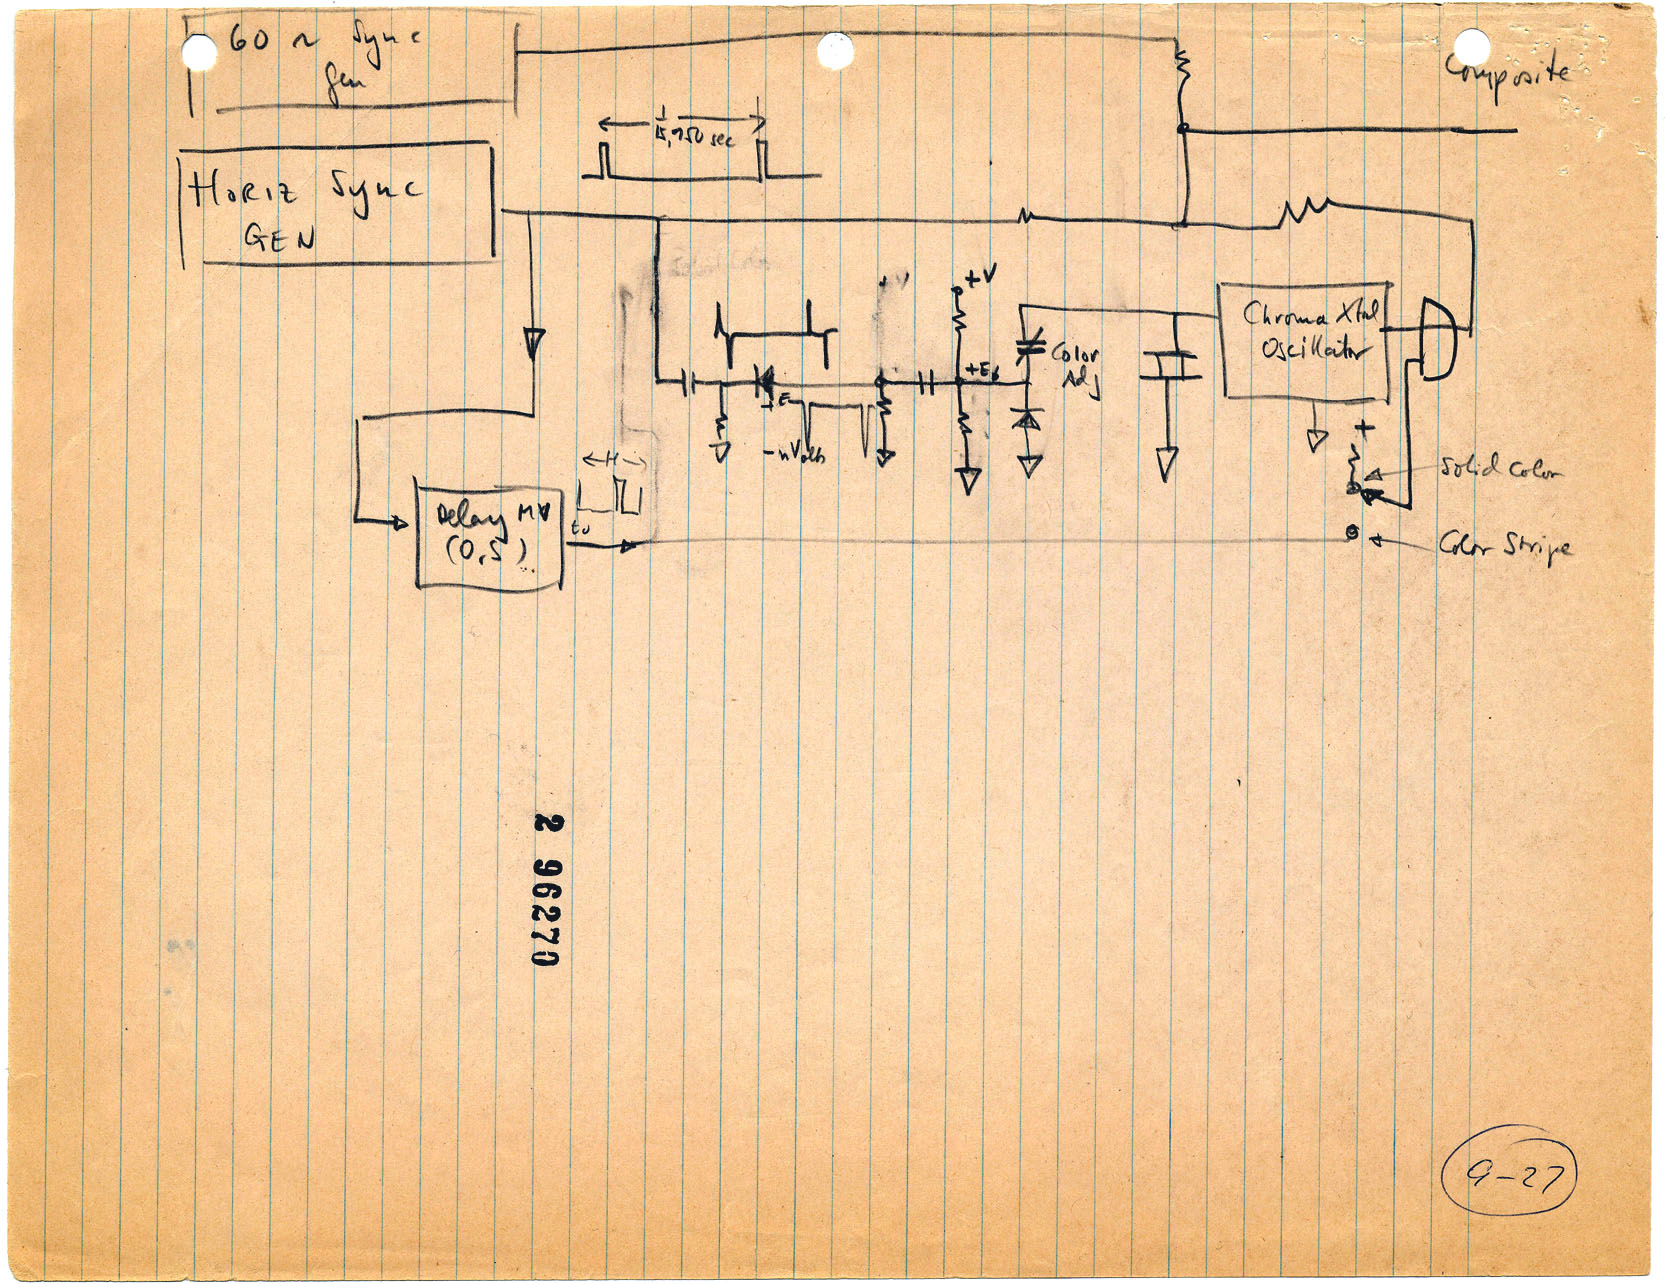 60 ~ Sync
Gen
Composite
1
15,750 sec
HORIZ Sync
GEN
+V
+V
Chroma Xtal
Oscillator
Color
Adj
+E
- n Volts
H
+
Solid Color
Delay MV
(O.S)
to
Color Stripe
2 96270
9-27